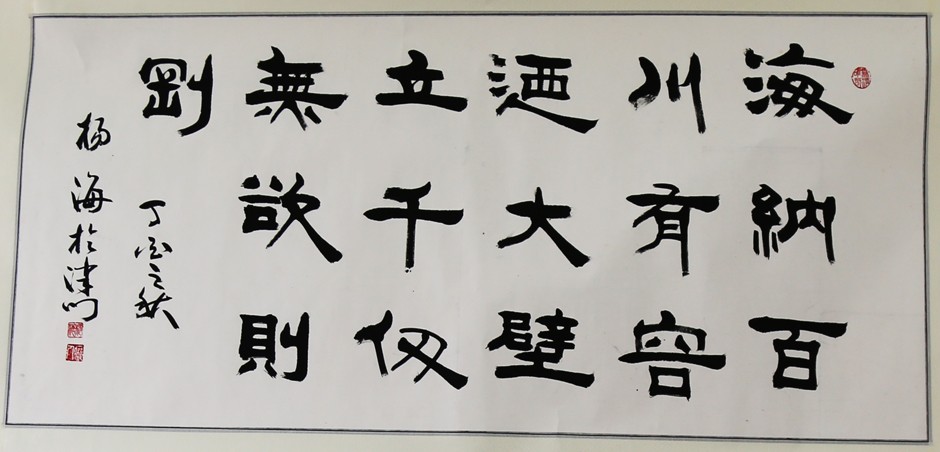 海納百
川有容
迺大壁
立千仞
無欲則
剛
丁酉之秋
杨海於津门